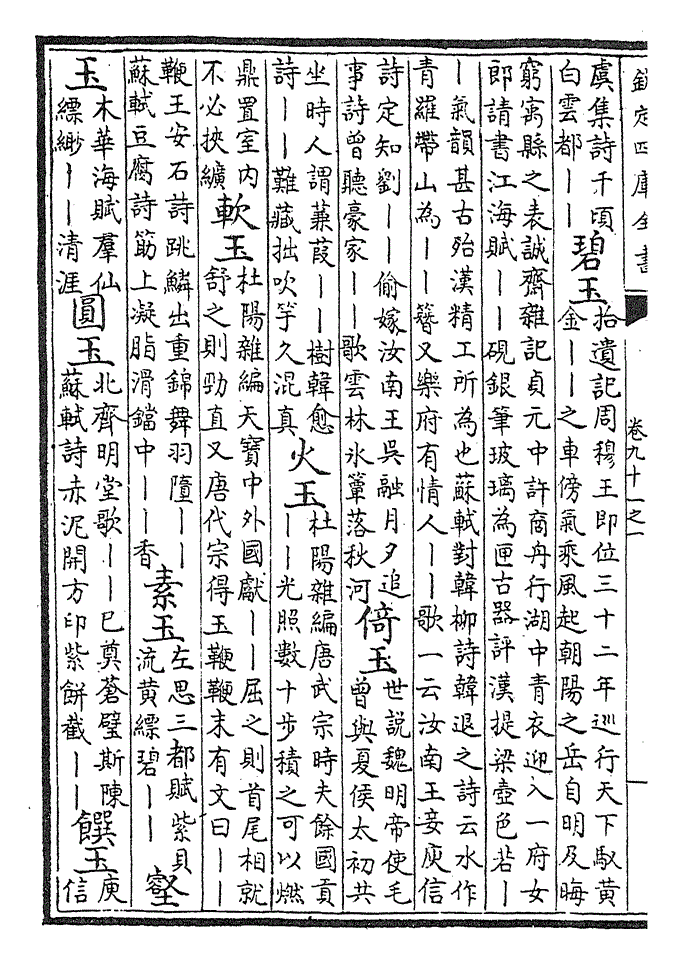 欽定四庫全書
卷九十一之一
虞集詩千頃
白雲都丨丨
碧玉
拾遺記周穆王即位三十二年巡行天下馭黃
金丨丨之車傍氣乘風起朝陽之岳自明及晦
窮寓縣之表誠齋雜記貞元中許商舟行湖中青衣迎入一府女
郎請書江海賦丨丨硯銀筆玻璃為匣古器評漢提梁壺色若丨
丨氣韻甚古殆漢精工所為也蘇軾對韓柳詩韓退之詩云水作
青羅帶山為丨丨簪又樂府有情人丨丨歌一云汝南王妾庾信
詩定知劉丨丨偷嫁汝南王吳融月夕追
事詩曾聽豪家丨丨歌雲林氷簟落秋河
倚玉
世説魏明帝使毛
曾與夏侯太初共
坐時人謂蒹葭丨丨樹韓愈
詩丨丨難藏拙吹竽久混真
火玉
杜陽雜編唐武宗時夫餘國貢
丨丨光照數十步積之可以燃
鼎置室内
不必挾纊
軟玉
杜陽雜編天寶中外國獻丨丨屈之則首尾相就
舒之則勁直又唐代宗得玉鞭鞭末有文曰丨丨
鞭王安石詩跳鱗出重錦舞羽墮丨丨
蘇軾豆腐詩筯上凝脂滑鐺中丨丨香
素玉
左思三都賦紫貝
流黃縹碧丨丨
壑
玉
木華海賦羣仙
縹緲丨丨清涯
圓玉
北齊明堂歌丨丨已奠蒼璧斯陳
蘇軾詩赤泥開方印紫餅截丨丨
饌玉
庾
信